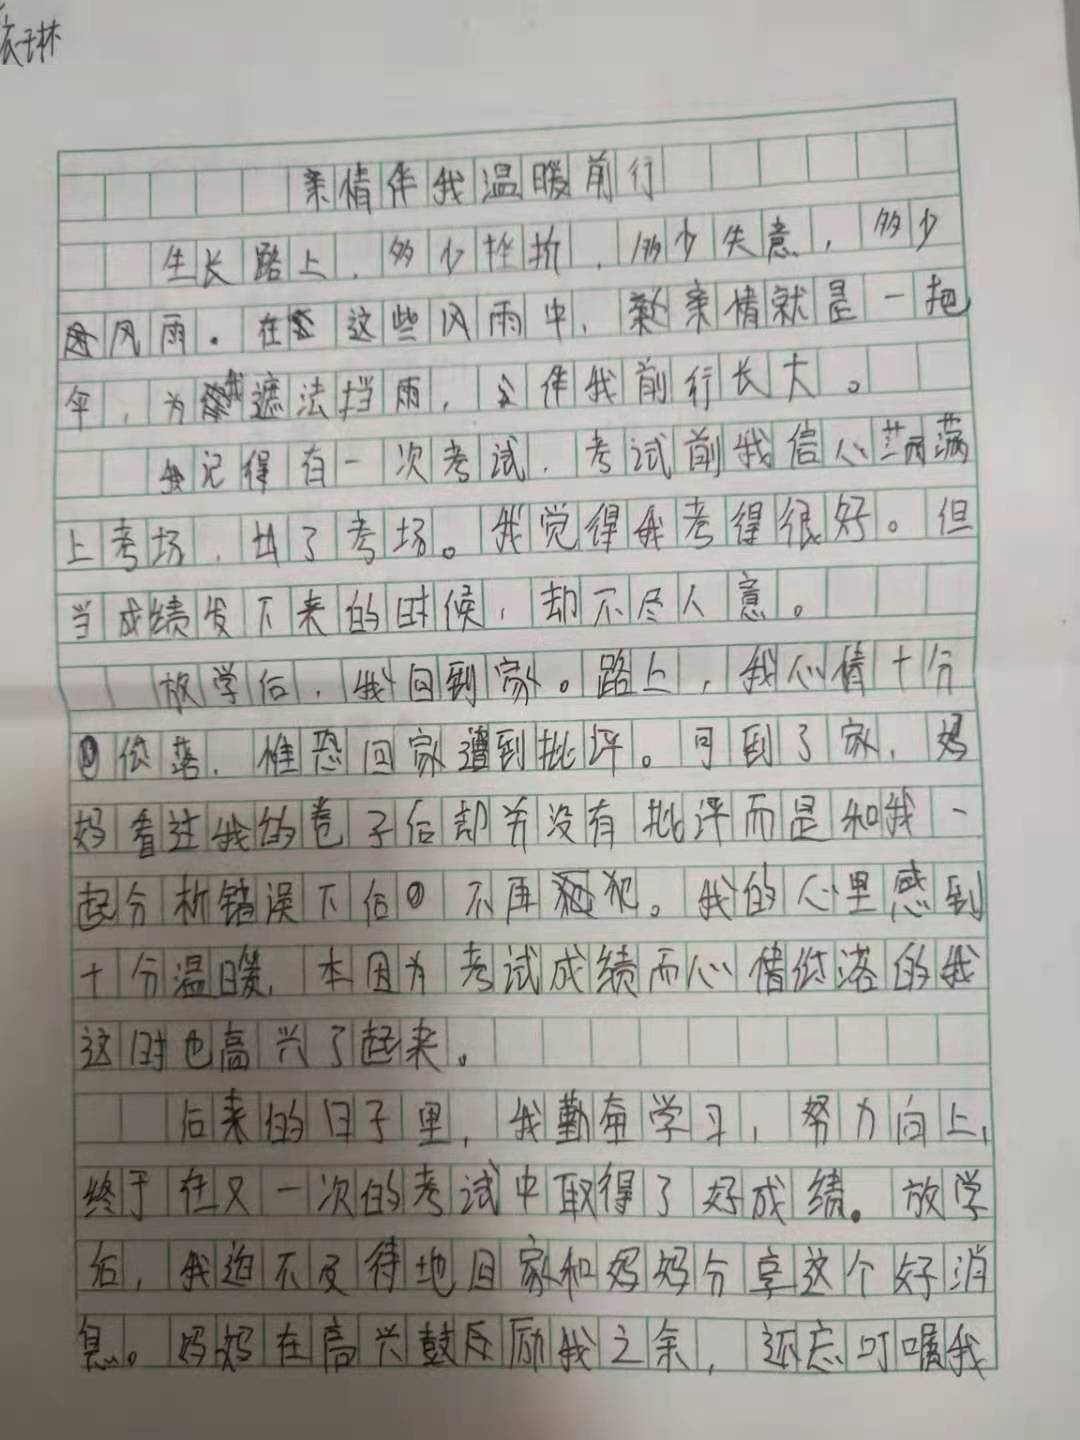 亲情伴我温暖前行
生长路上,多少挫折,多少失意,多少
风雨。在这些风雨中,亲情就是一把
伞,为我遮法挡雨,伴我前行长大。
记得有一次考试,考试前我信心满满
上考场,出了考场。我觉得我考得很好。但
当成绩发下来的时候,却不尽人意。
放学后,我回到家。路上,我心情十分
低落,惟恐回家遭到批评。可到了家,妈
妈看过我的卷子后却并没有批评而是和我一
起分析错误下后不再犯。我的心里感到
十分温暖,本因为考试成绩而心情低落的我
这时也高兴了起来。
后来的日子里,我勤奋学习,努力向上,
终于在又一次的考试中取得了好成绩。放学
后,我迫不及待地回家和妈妈分享这个好消
息。妈妈在高兴鼓励我之余,还忘叮嘱我